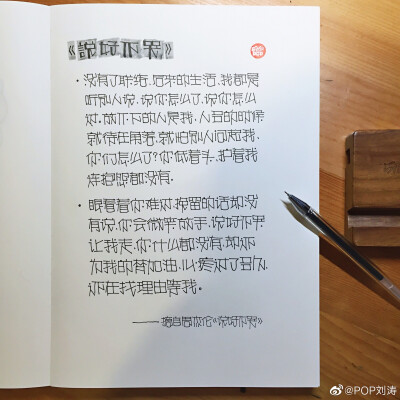 《说好不哭》
·没有了联络.后来的生活.我都是
听别人说.说你怎么了.说你怎么
过.放不下的人是我.人多的时候
就待在角落.就怕别人问起我.
你们怎么了?你低着头.护着我
连抱怨都没有.
·眼看着你难过.挽留的话却没
有说.你会微笑放手.说好不哭
让我走.你什么都没有.却还
为我的梦加油.心疼过了多久.
还在找理由等我。
——摘自周杰伦《说好不哭》
@POP刘涛